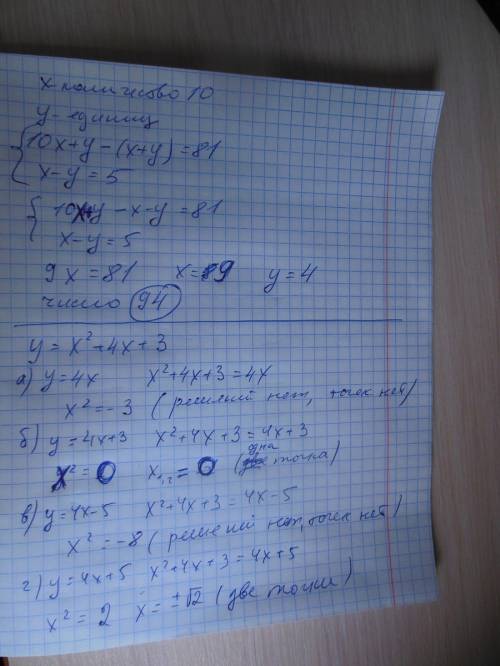 x-количество 10
y-единиц
10x+y-(x+y)=81
x-y=5
10x+y-x-y=81
x-y=5
9x=81 x=9 y=4
число 94
y=x²+4x+3
а) y=4x x²+4x+3=4x
x²=-3 (решений нет, точек нет)
б) y=4x+3 x²+4x+3=4x+3
x²=0 x₁,₂=0 (одна точка)
в) y=4x-5 x²+4x+3=4x-5
x²=-8 (решений нет, точек нет)
г) y=4x+5 x²+4x+3=4x+5
x²=2 x=±√2 (две точки)